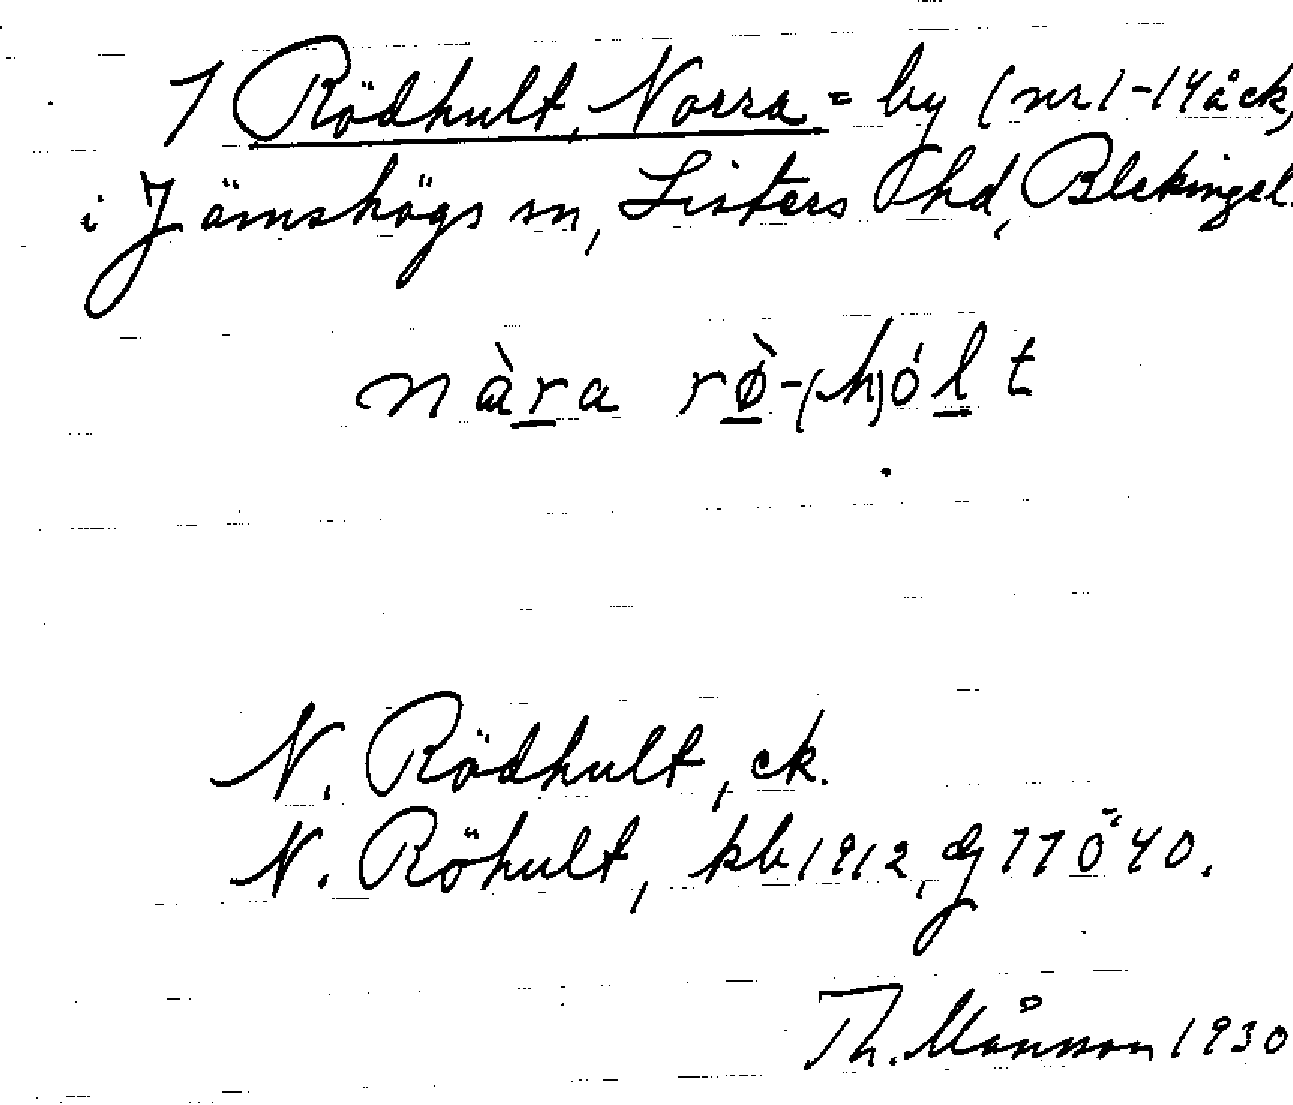 7 Rödhult, Norra = by (nr 1-14 å ck)
i Jämshögs sn, Listers hd, Blekinge l.
nàra rø̀-(h)ólt
N. Rödhult, ck.
N. Röhult, kb 1912, 40.
Th. Månsson 1930